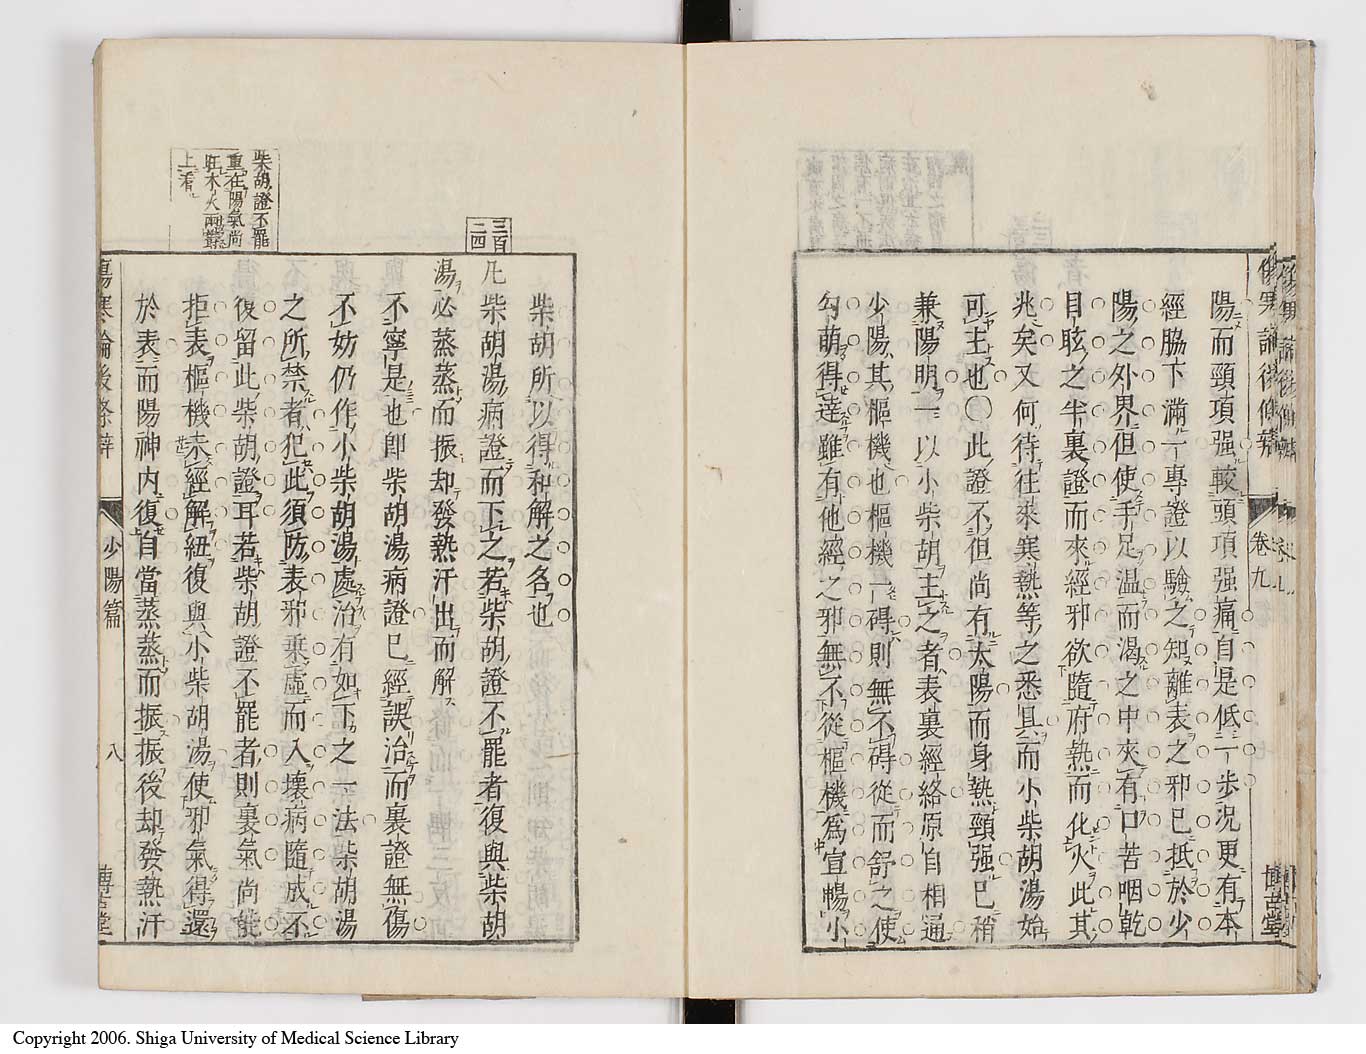 陽而頸項强較頭項强痛自是低一步況更有本
經脇下滿一專證以驗之知離表之邪已抵於少
陽之外界但使手足温而渴之中夾有口苦咽乾
目眩之半裏證而來經邪欲隨府熱而化火此其
兆矣又何待往來寒熱等之悉具而小柴胡湯始
可主也〇此證不但尚有太陽而身熱頸强已稍
兼陽明一以小柴胡主之者表裏經絡原自相通
少陽其樞機也樞機一碍則無不碍從而舒之使
勾萌得達雖有他經之邪無不從樞機爲宣暢小
卷九
柴胡所以得和解之名也
三百二四
凡柴胡湯病證而下之若柴胡證不罷者復與柴胡
湯必蒸蒸而振却發熱汗出而解
不寧是也卽柴胡湯病證已經誤治而裏證無傷
不妨仍作小柴胡湯處治有如下之一法柴胡湯
之所禁者犯此須防表邪乗虛而入壞病隨成不
復留此柴胡證耳若柴胡證不罷者則裏氣尚能
拒表樞機未經解紐復與小柴胡湯使邪氣得還
於表而陽神内復自當蒸蒸而振振後却發熱汗
柴胡證不罷
重在陽氣尚
旺木火兩
上看
傷寒論後條辨
少陽篇
八
博古堂
Copyright 2006. Shiga University of Medical Science Library